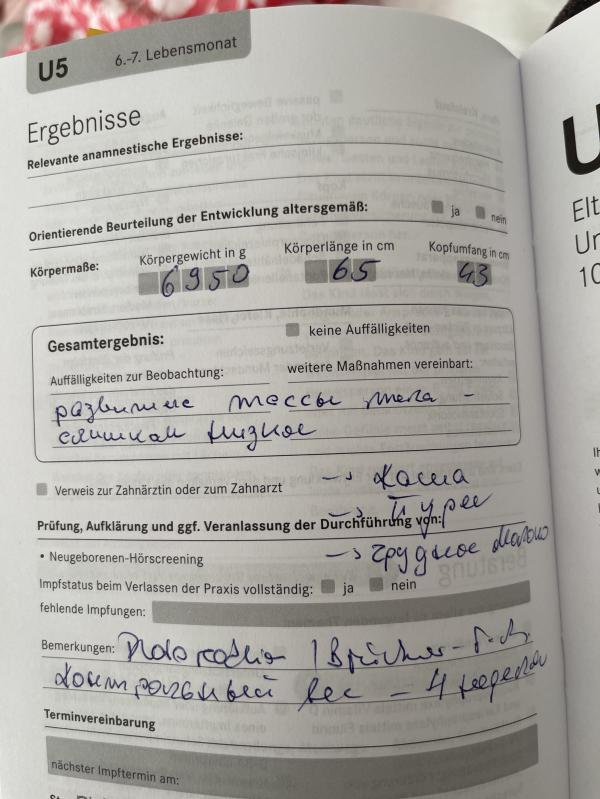 U5 6.-7. Lebensmonat
Ergebnisse
Relevante anamnestische Ergebnisse:
Orientierende Beurteilung der Entwicklung altersgemäß: ja nein
Körpermaße: Körpergewicht in g Körperlänge in cm Kopfumfang in cm
6950 65 43
Gesamtergebnis: keine Auffälligkeiten
Auffälligkeiten zur Beobachtung: weitere Maßnahmen vereinbart:
развитие массы тела -
слишком низкое
Verweis zur Zahnärztin oder zum Zahnarzt
-> каша
-> Пүрее
Prüfung, Aufklärung und ggf. Veranlassung der Durchführung von:
-> грудное молоко
• Neugeborenen-Hörscreening
Impfstatus beim Verlassen der Praxis vollständig: ja nein
fehlende Impfungen:
Bemerkungen: / Brückner-
контрольный вес - 4 недели
Terminvereinbarung
nächster Impftermin am:
U
Elt
10
Beratung